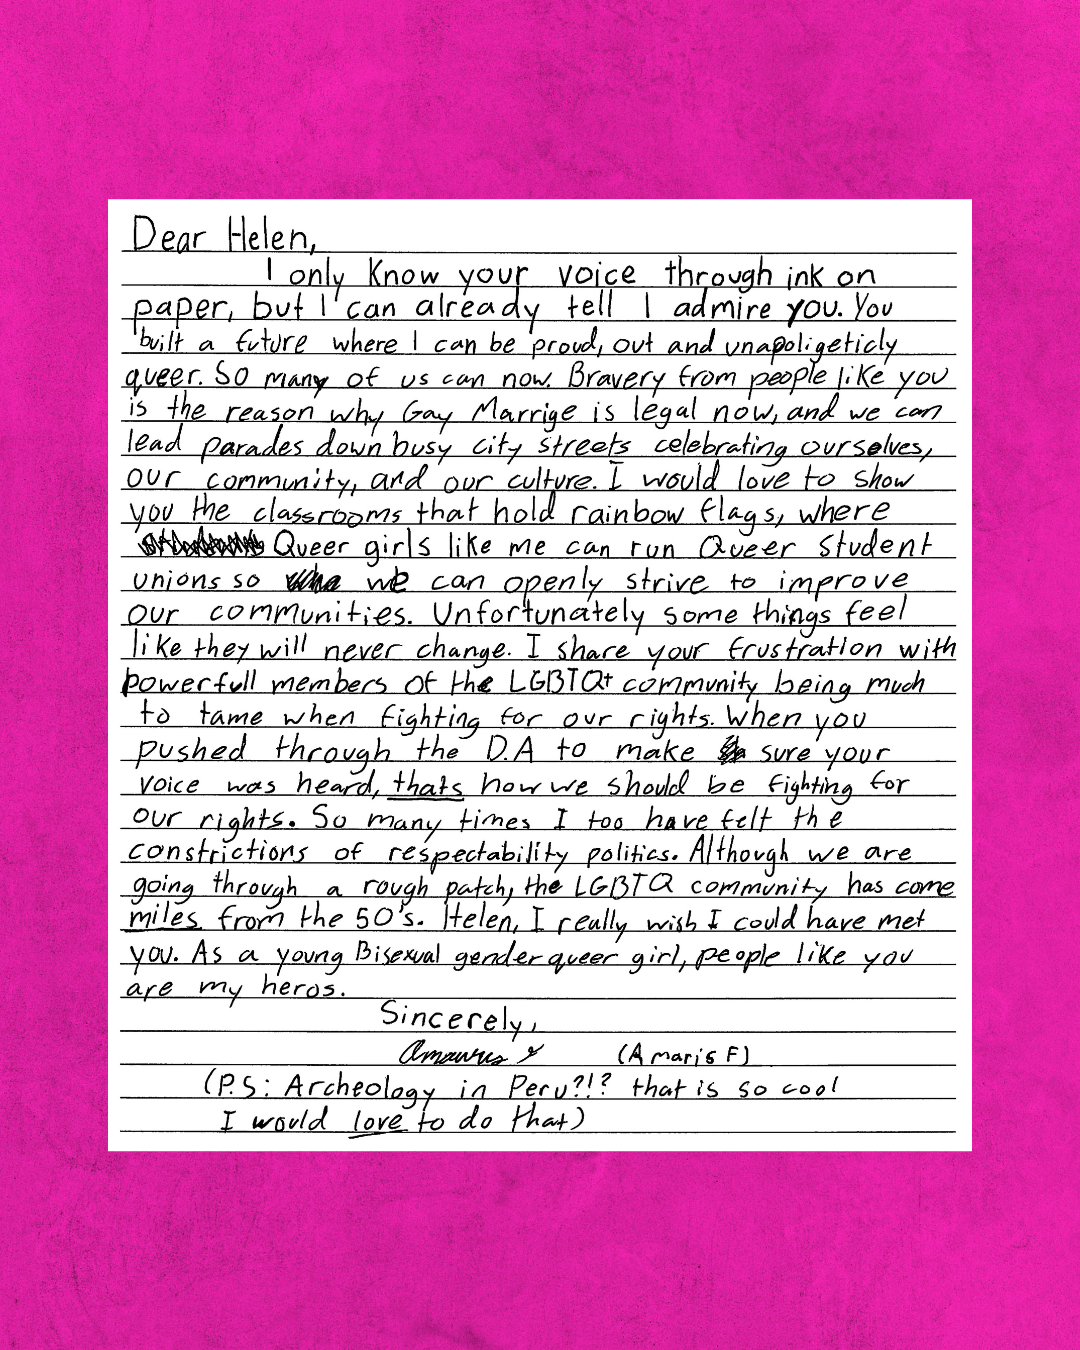 Dear Helen,
I only know your voice through ink on
paper, but I can already tell I admire you. You
built a future where I can be proud, out and unapoligeticly
queer. So many of us can now. Bravery from people like you
is the reason why Gay Marrige is legal now, and we can
lead parades down busy city streets celebrating ourselves,
our community, and our culture. I would love to show
you the classrooms that hold rainbow flags, where
Queer girls like me can run Queer student
unions so we can openly strive to improve
our communities. Unfortunately some things feel
like they will never change. I share your frustration with
powerfull members of the LGBTQ+ community being much
to tame when fighting for our rights. When you
pushed through the D.A to make sure your
voice was heard, thats how we should be fighting for
our rights. So many times I too have felt the
constrictions of respectability politics. Although we are
going through a rough patch, the LGBTQ community has come
miles from the 50's. Helen, I really wish I could have met
you. As a young Bisexual genderqueer girl, people like you
are my heros.
Sincerely,
(Amaris F)
(P.S: Archeology in Peru?!? that is so cool
I would love to do that)